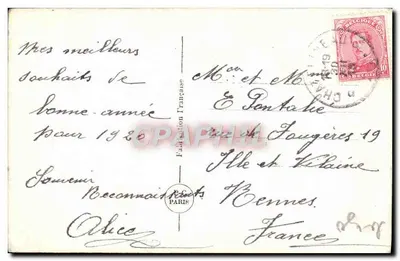 Mes meilleurs
souhaits de
bonne année
pour 1920
Souvenir
Reconnaissants
Alice
Fabrication Française
PARIS
Mr et Mme
E Pontalié
rue de Fougères 19
Ille et Vilaine
Rennes
France